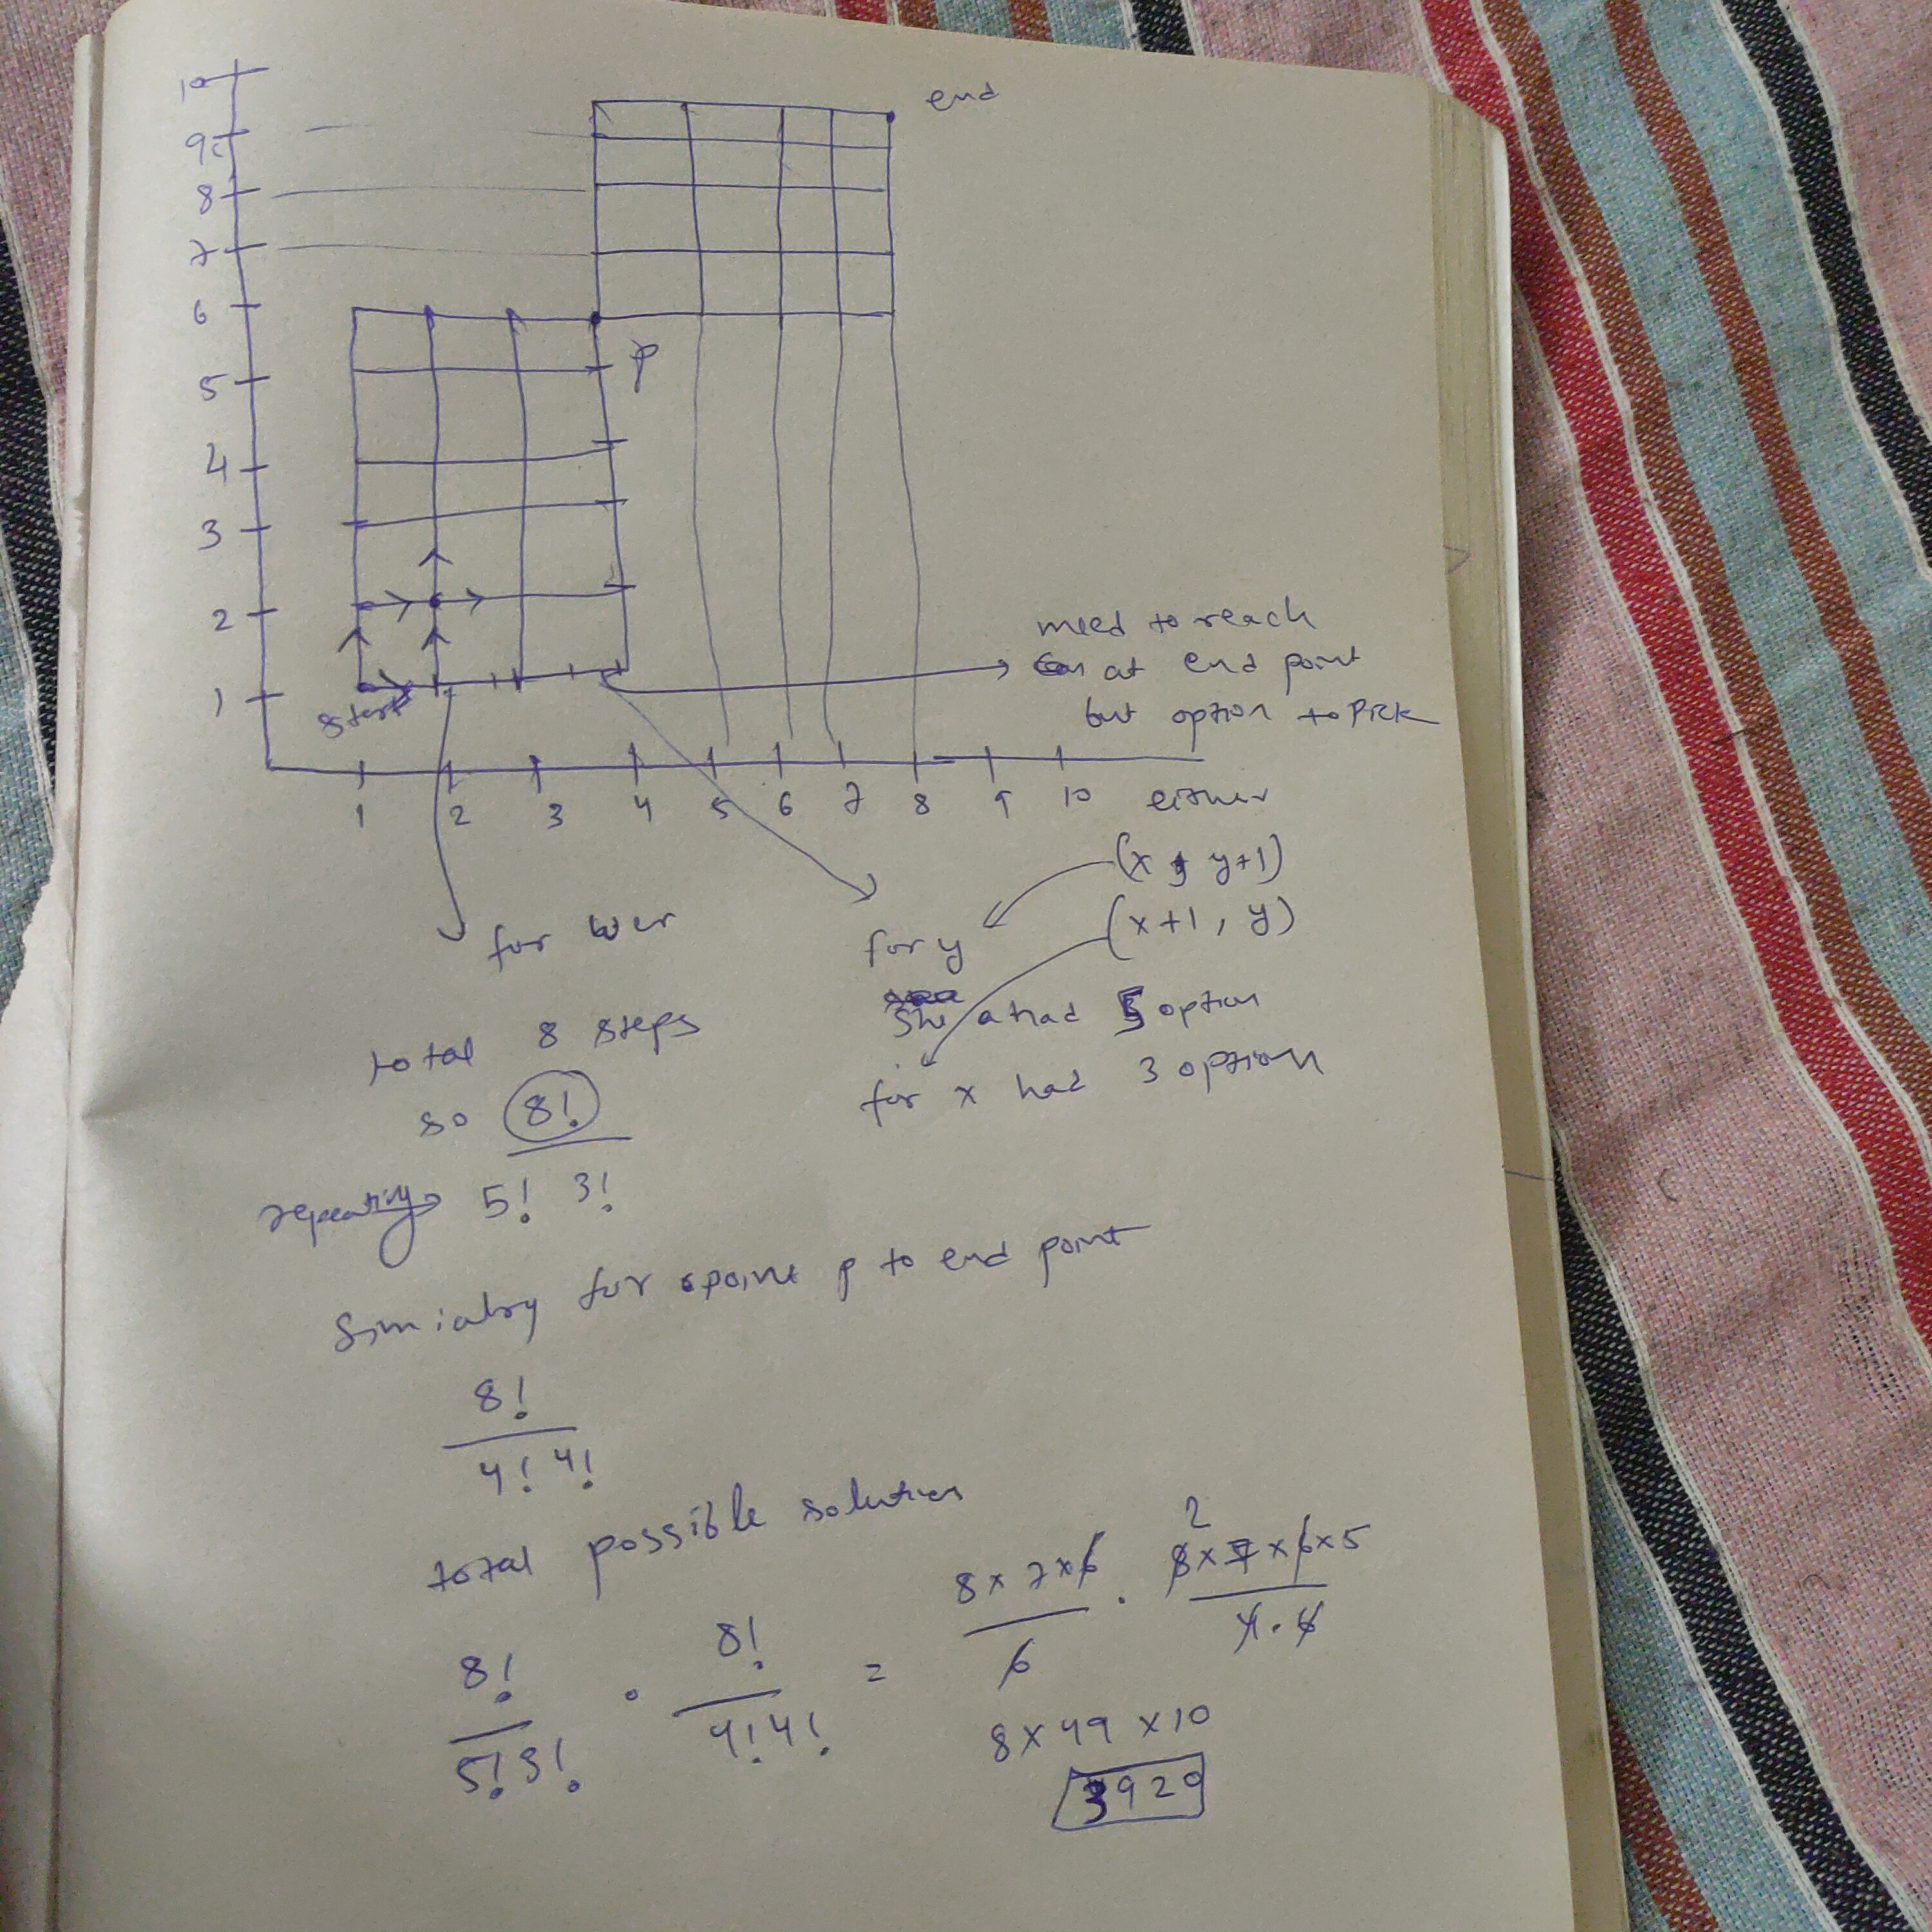 10
end
9
8
7
6
P
5
4
3
2
1
start
need to reach
at end point
but option to pick
1 2 3 4 5 6 7 8 9 10 either
(x, y+1)
(x+1, y)
for y
for
had 5 option
for x had 3 option
total 8 steps
so 8!
repeating 5! 3!
Simialry for point p to end point
8!
4! 4!
total possible solution
8! . 8! = 8 x 7 x 6 . 8 x 7 x 6 x 5
5! 3! 4! 4! 6 4 . 6
2
8 x 49 x 10
3920